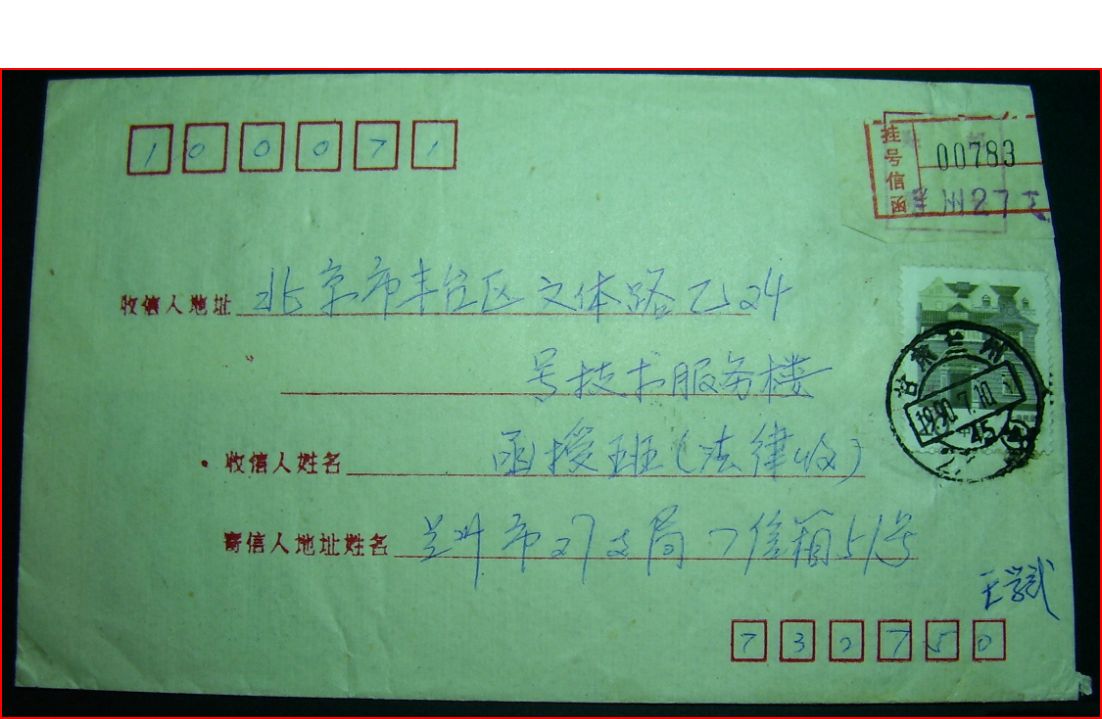 100071
挂号信函
00783
兰州27支
收信人地址 北京市丰台区文体路乙24
号技术服务楼
收信人姓名 函授班(法律收)
甘肃兰州
1990.7.10
寄信人地址姓名 兰州市27支局7信箱51号
王学武
732750